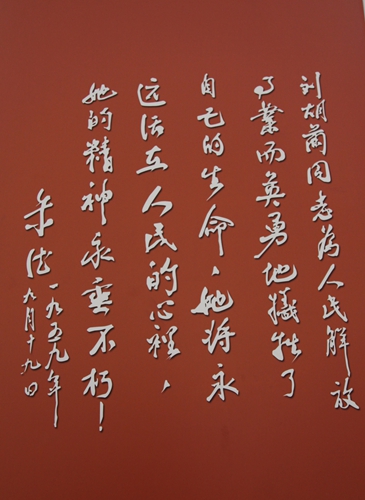 刘胡兰同志为人民解放
事業而英勇地犠牲了
自己的生命，她将永
远活在人民的心裡，
她的精神永垂不朽！
朱德 一九五九年
九月十九日